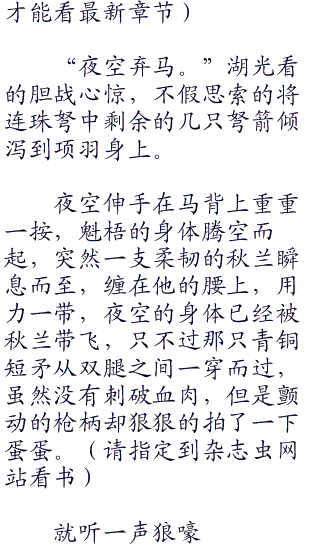 才能看最新章节）
“夜空弃马。”湖光看
的胆战心惊，不假思索的将
连珠弩中剩余的几只弩箭倾
泻到项羽身上。
夜空伸手在马背上重重
一按，魁梧的身体腾空而
起，突然一支柔韧的秋兰瞬
息而至，缠在他的腰上，用
力一带，夜空的身体已经被
秋兰带飞，只不过那只青铜
短矛从双腿之间一穿而过，
虽然没有刺破血肉，但是颤
动的枪柄却狠狠的拍了一下
蛋蛋。（请指定到杂志虫网
站看书）
就听一声狼嚎